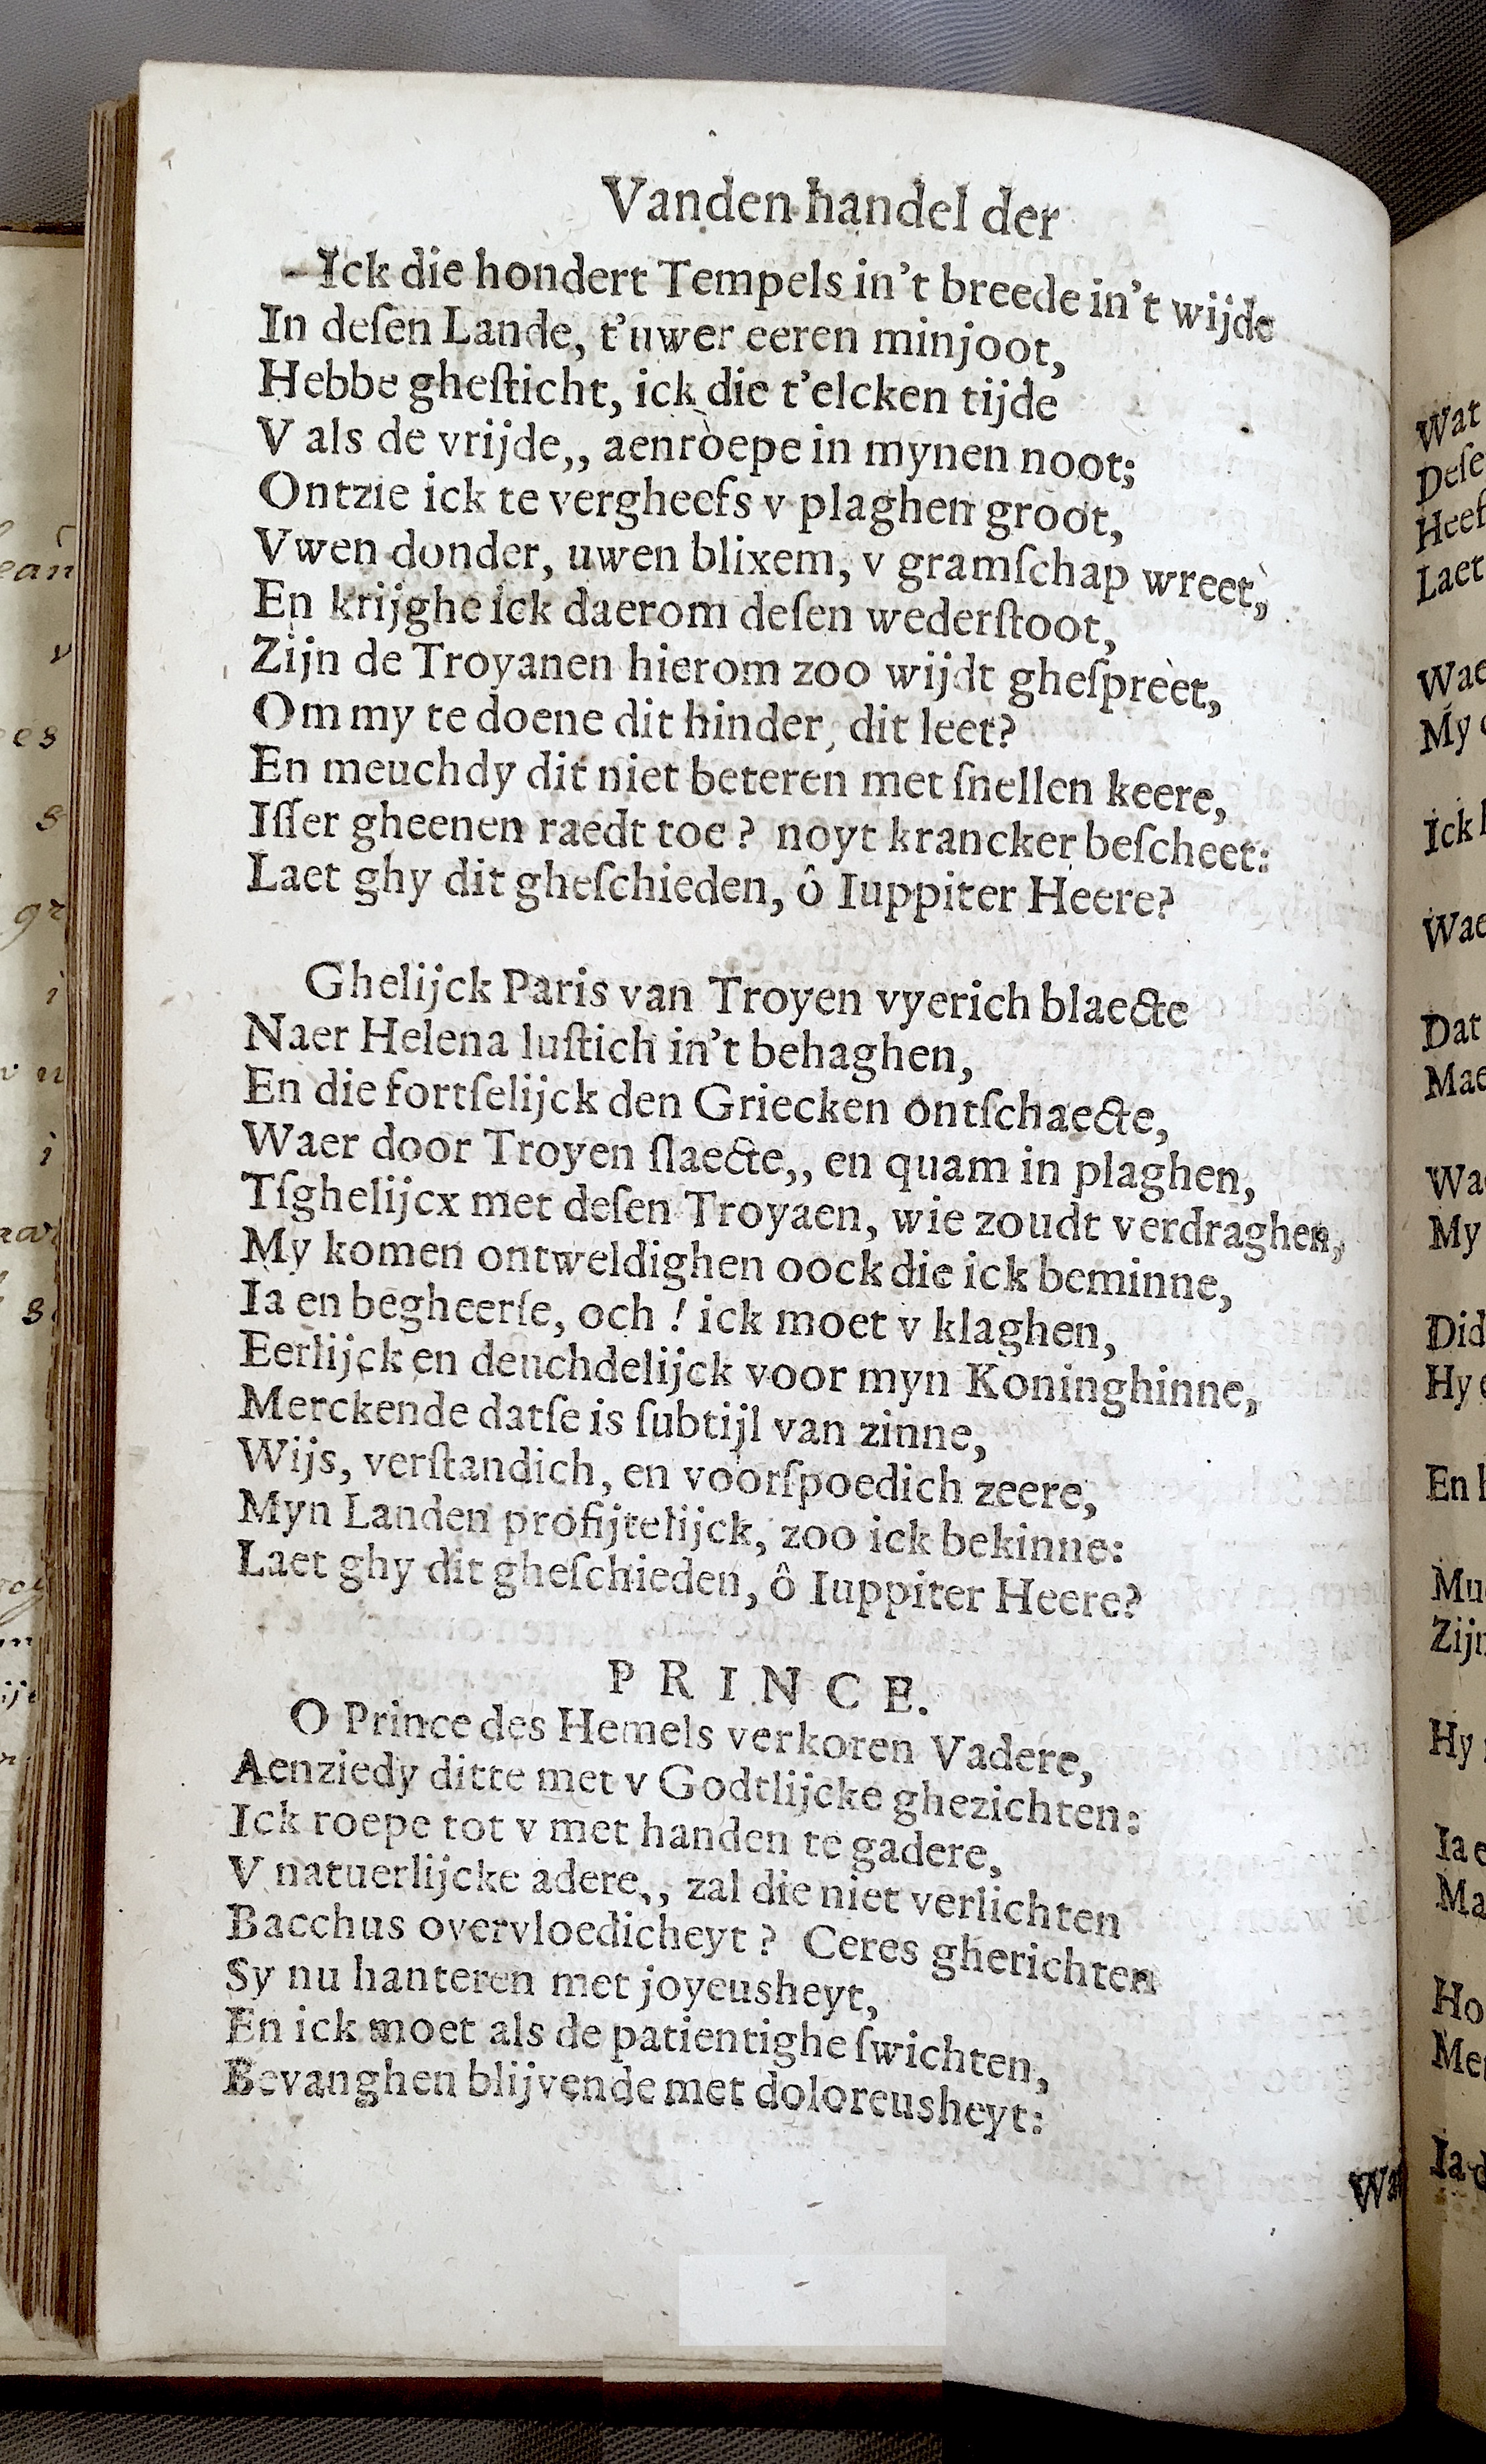 Vanden handel der
Ick die hondert Tempels in't breede in't wijde
In deſen Lande, t'uwer eeren minjoot,
Hebbe gheſticht, ick die t'elcken tijde
V als de vrijde,, aenroepe in mynen noot;
Ontzie ick te vergheefs v plaghen groot,
Vwen donder, uwen blixem, v gramſchap wreet,
En krijghe ick daerom deſen wederſtoot,
Zijn de Troyanen hierom zoo wijdt gheſpreet,
Om my te doene dit hinder, dit leet?
En meuchdy dit niet beteren met ſnellen keere,
Iſſer gheenen raedt toe? noyt krancker beſcheet:
Laet ghy dit gheſchieden, ô Iuppiter Heere?
Ghelijck Paris van Troyen vyerich blaecte
Naer Helena luſtich in't behaghen,
En die fortſelijck den Griecken ontſchaecte,
Waer door Troyen ſlaecte,, en quam in plaghen,
Tſghelijcx met deſen Troyaen, wie zoudt verdraghen,
My komen ontweldighen oock die ick beminne,
Ia en begheerſe, och! ick moet v klaghen,
Eerlijck en deuchdelijck voor myn Koninghinne,
Merckende datſe is ſubtijl van zinne,
Wijs, verſtandich, en voorſpoedich zeere,
Myn Landen profijtelijck, zoo ick bekinne:
Laet ghy dit gheſchieden, ô Iuppiter Heere?
PRINCE.
O Prince des Hemels verkoren Vadere,
Aenziedy ditte met v Godtlijcke ghezichten:
Ick roepe tot v met handen te gadere,
V natuerlijcke adere,, zal die niet verlichten
Bacchus overvloedicheyt? Ceres gherichten
Sy nu hanteren met joyeusheyt,
En ick moet als de patientighe ſwichten,
Bevanghen blijvende met doloreusheyt:
Wat
Deſe
Heef
Laet
Wae
My
Ick
Wae
Dat
Mae
My
Did
Hy
En
Zijn
Hy
Ia
Ma
Ho
Ia